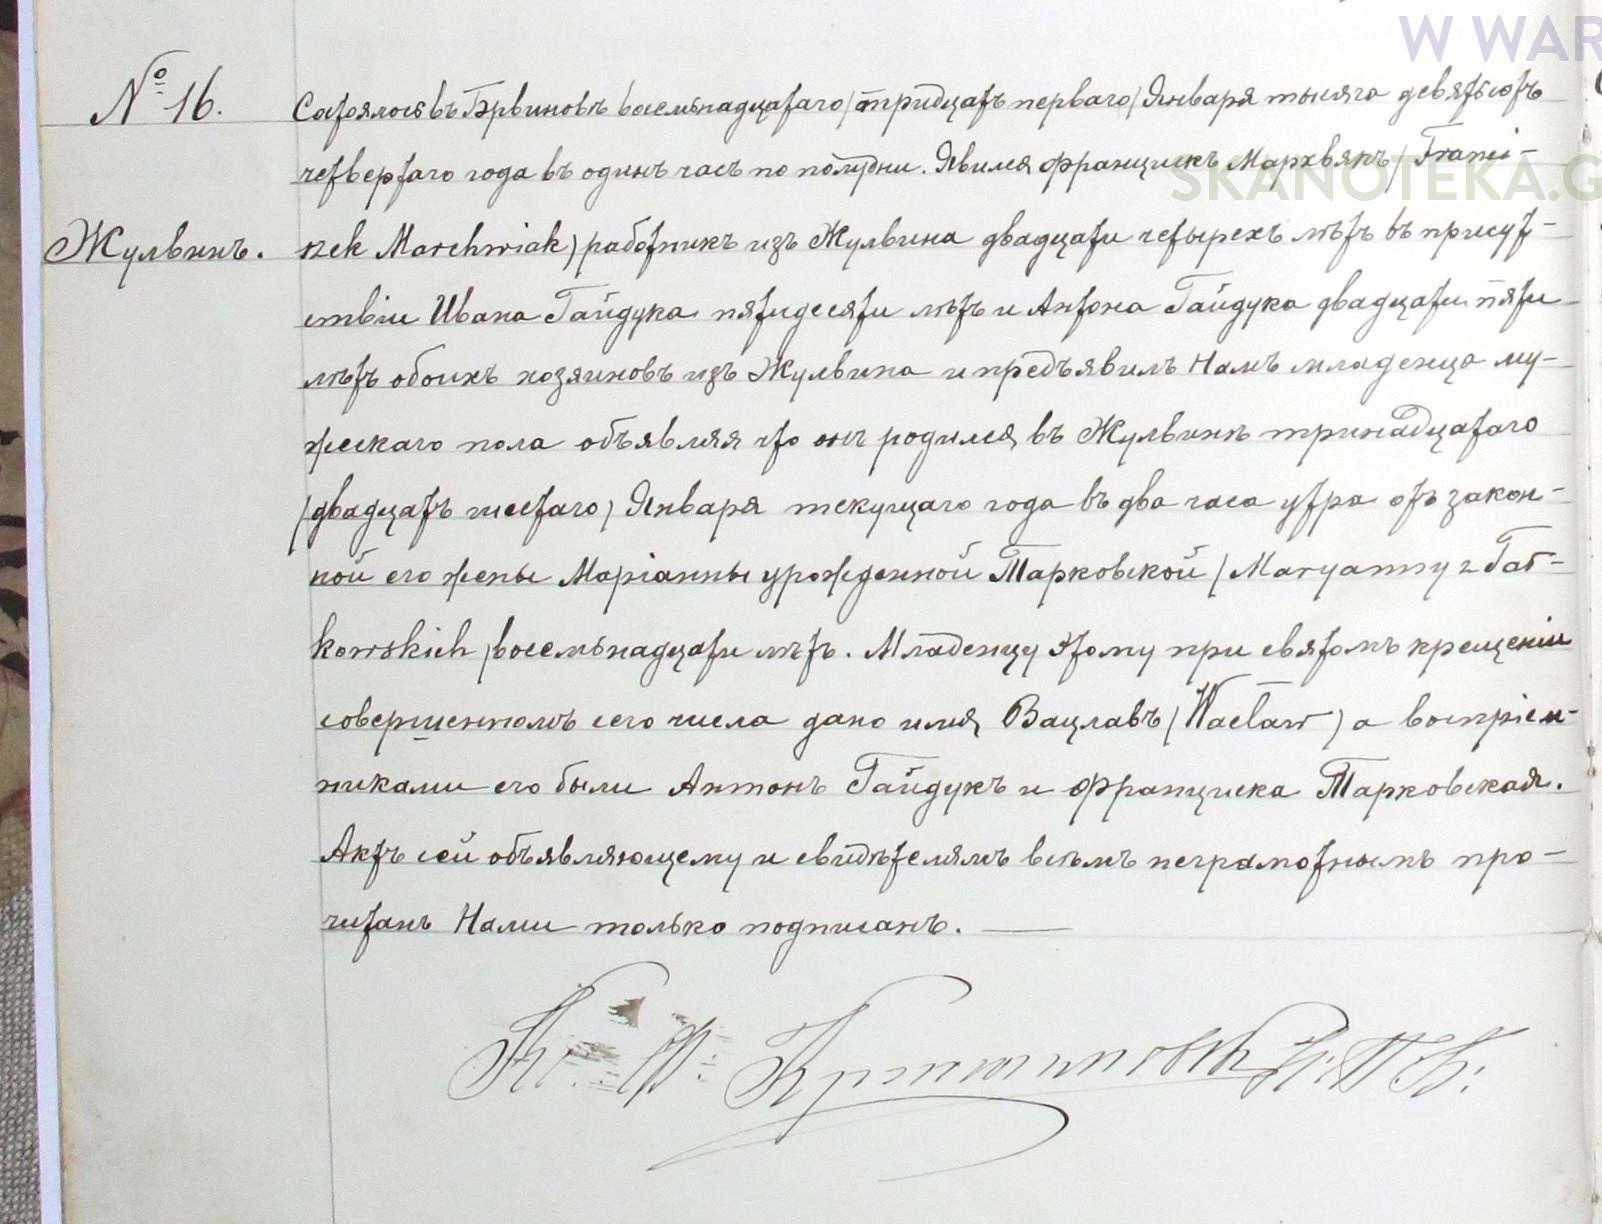 W WAR
SKANOTEKA.G
№ 16.
Состоялось въ Брвиновѣ восемьнадцатаго /тридцать перваго/ Января тысяча девятьсотъ
четвертаго года въ одинъ часъ по полудни. Явился Францискъ Мархвякъ / Franci-
Жулвинъ.
szek Marchwiak) работникъ изъ Жулвина двадцати четырехъ лѣтъ въ присут-
ствіи Ивана Гайдука пятидесяти лѣтъ и Антона Гайдука двадцати пяти
лѣтъ обоихъ хозяиновъ изъ Жулвина и предъявилъ Намъ младенца му-
жескаго пола объявляя что онъ родился въ Жулвинѣ тринадцатаго
/двадцать шестаго/ Января текущаго года въ два часа утра отъ закон-
ной его жены Маріанны урожденной Тарковской / Maryanny z Tar-
kowskich /восемьнадцати лѣтъ. Младенцу этому при святомъ крещеніи
совершенномъ сего числа дано имя Вацлавъ (Wacław) а воспріем-
никами его были Антонъ Гайдукъ и Франциска Тарковская.
Актъ сей объявляющему и свидѣтелямъ всѣмъ неграмотнымъ про-
читанъ Нами только подписанъ. —